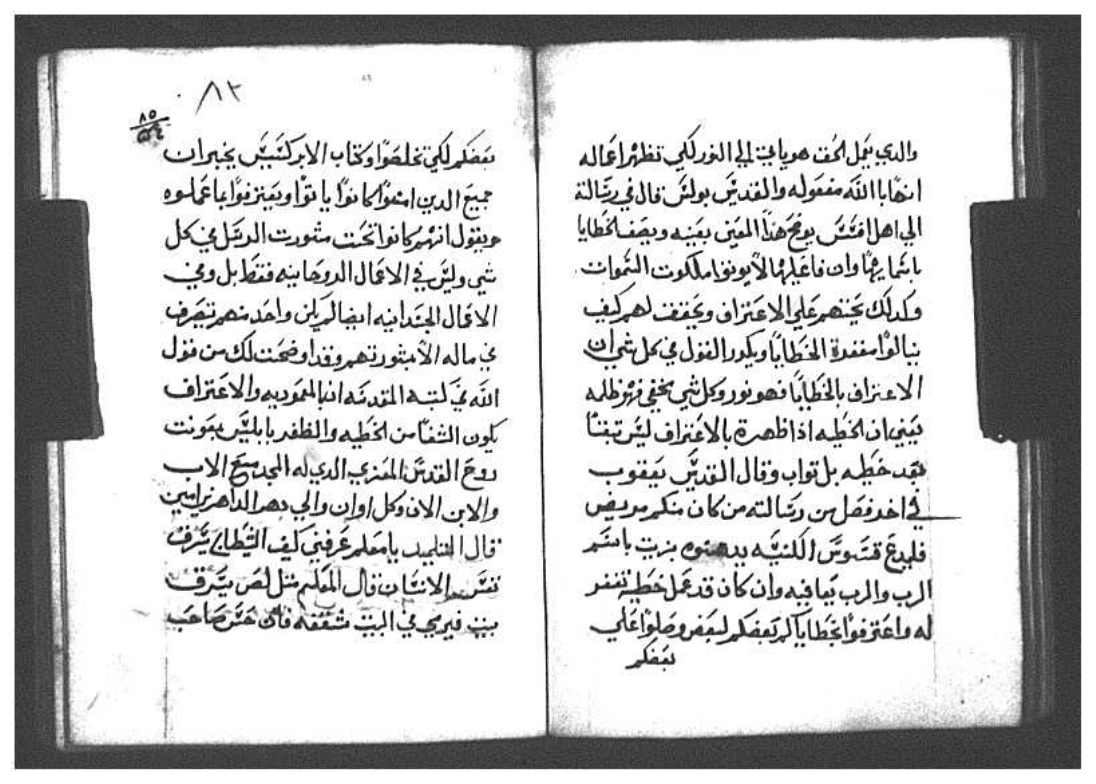 والدي يعمل الحق هو ياتي الي النور لكي تظهر اعماله
انها باالله مفعوله والقديس بولس قال في رسالته
الي اهل افسس يوضح هذا المعني بعينه ويصف الخطايا
باسمايها وان فاعليها لا يرثوا ملكوت السموات
وكدلك يحثهم علي الاعتراف ويحقق لهم كيف
ينالوا مغفرة الخطايا ويكرر القول في كل شي ان
الاعتراف بالخطايا فهو نور وكل شي يخفي فهو ظلمه
يعني ان الخطيه اذا ظهرت بالاعتراف ليس تبقا
بعد خطيه بل تواب وقال القديس يعقوب
في اخر فصل من رسالته من كان منكم مريض
فليدع قسوس الكنيسه يدهنوه بزيت باسم
الرب والرب يعافيه وان كان قد عمل خطية تغفر
له واعترفوا بخطاياكم بعضكم لبعض وصلوا علي
بعضكم
٨٢
٨٥
بعضكم لكي تخلصوا وكتاب الابركسيس يخبر ان
جميع الدين امنوا كانوا ياتوا ويعترفوا بما عملوه
ويقول انهم كانوا تحت مشورت الرسل في كل
شي وليس في الاعمال الروحانيه فقط بل وفي
الاعمال الجسدانيه ايضا لم يكن واحد منهم يتصرف
في ماله الا بمشورتهم وقد اوضحت لك من قول
الله في كتبه المقدسه ان بالمعموديه والاعتراف
يكون الشفا من الخطيه والظفر بابليس بمعونت
روح القدس المعزي الدي له المجد مع الاب
والابن الان وكل اوان والي دهر الداهرين امين
قال التلميد يا معلم عرفني كيف الشيطان يسرق
نفس الانسان قال المعلم مثل لص يسرق
بيت فيرمي في البيت شقفه فان حس صاحب